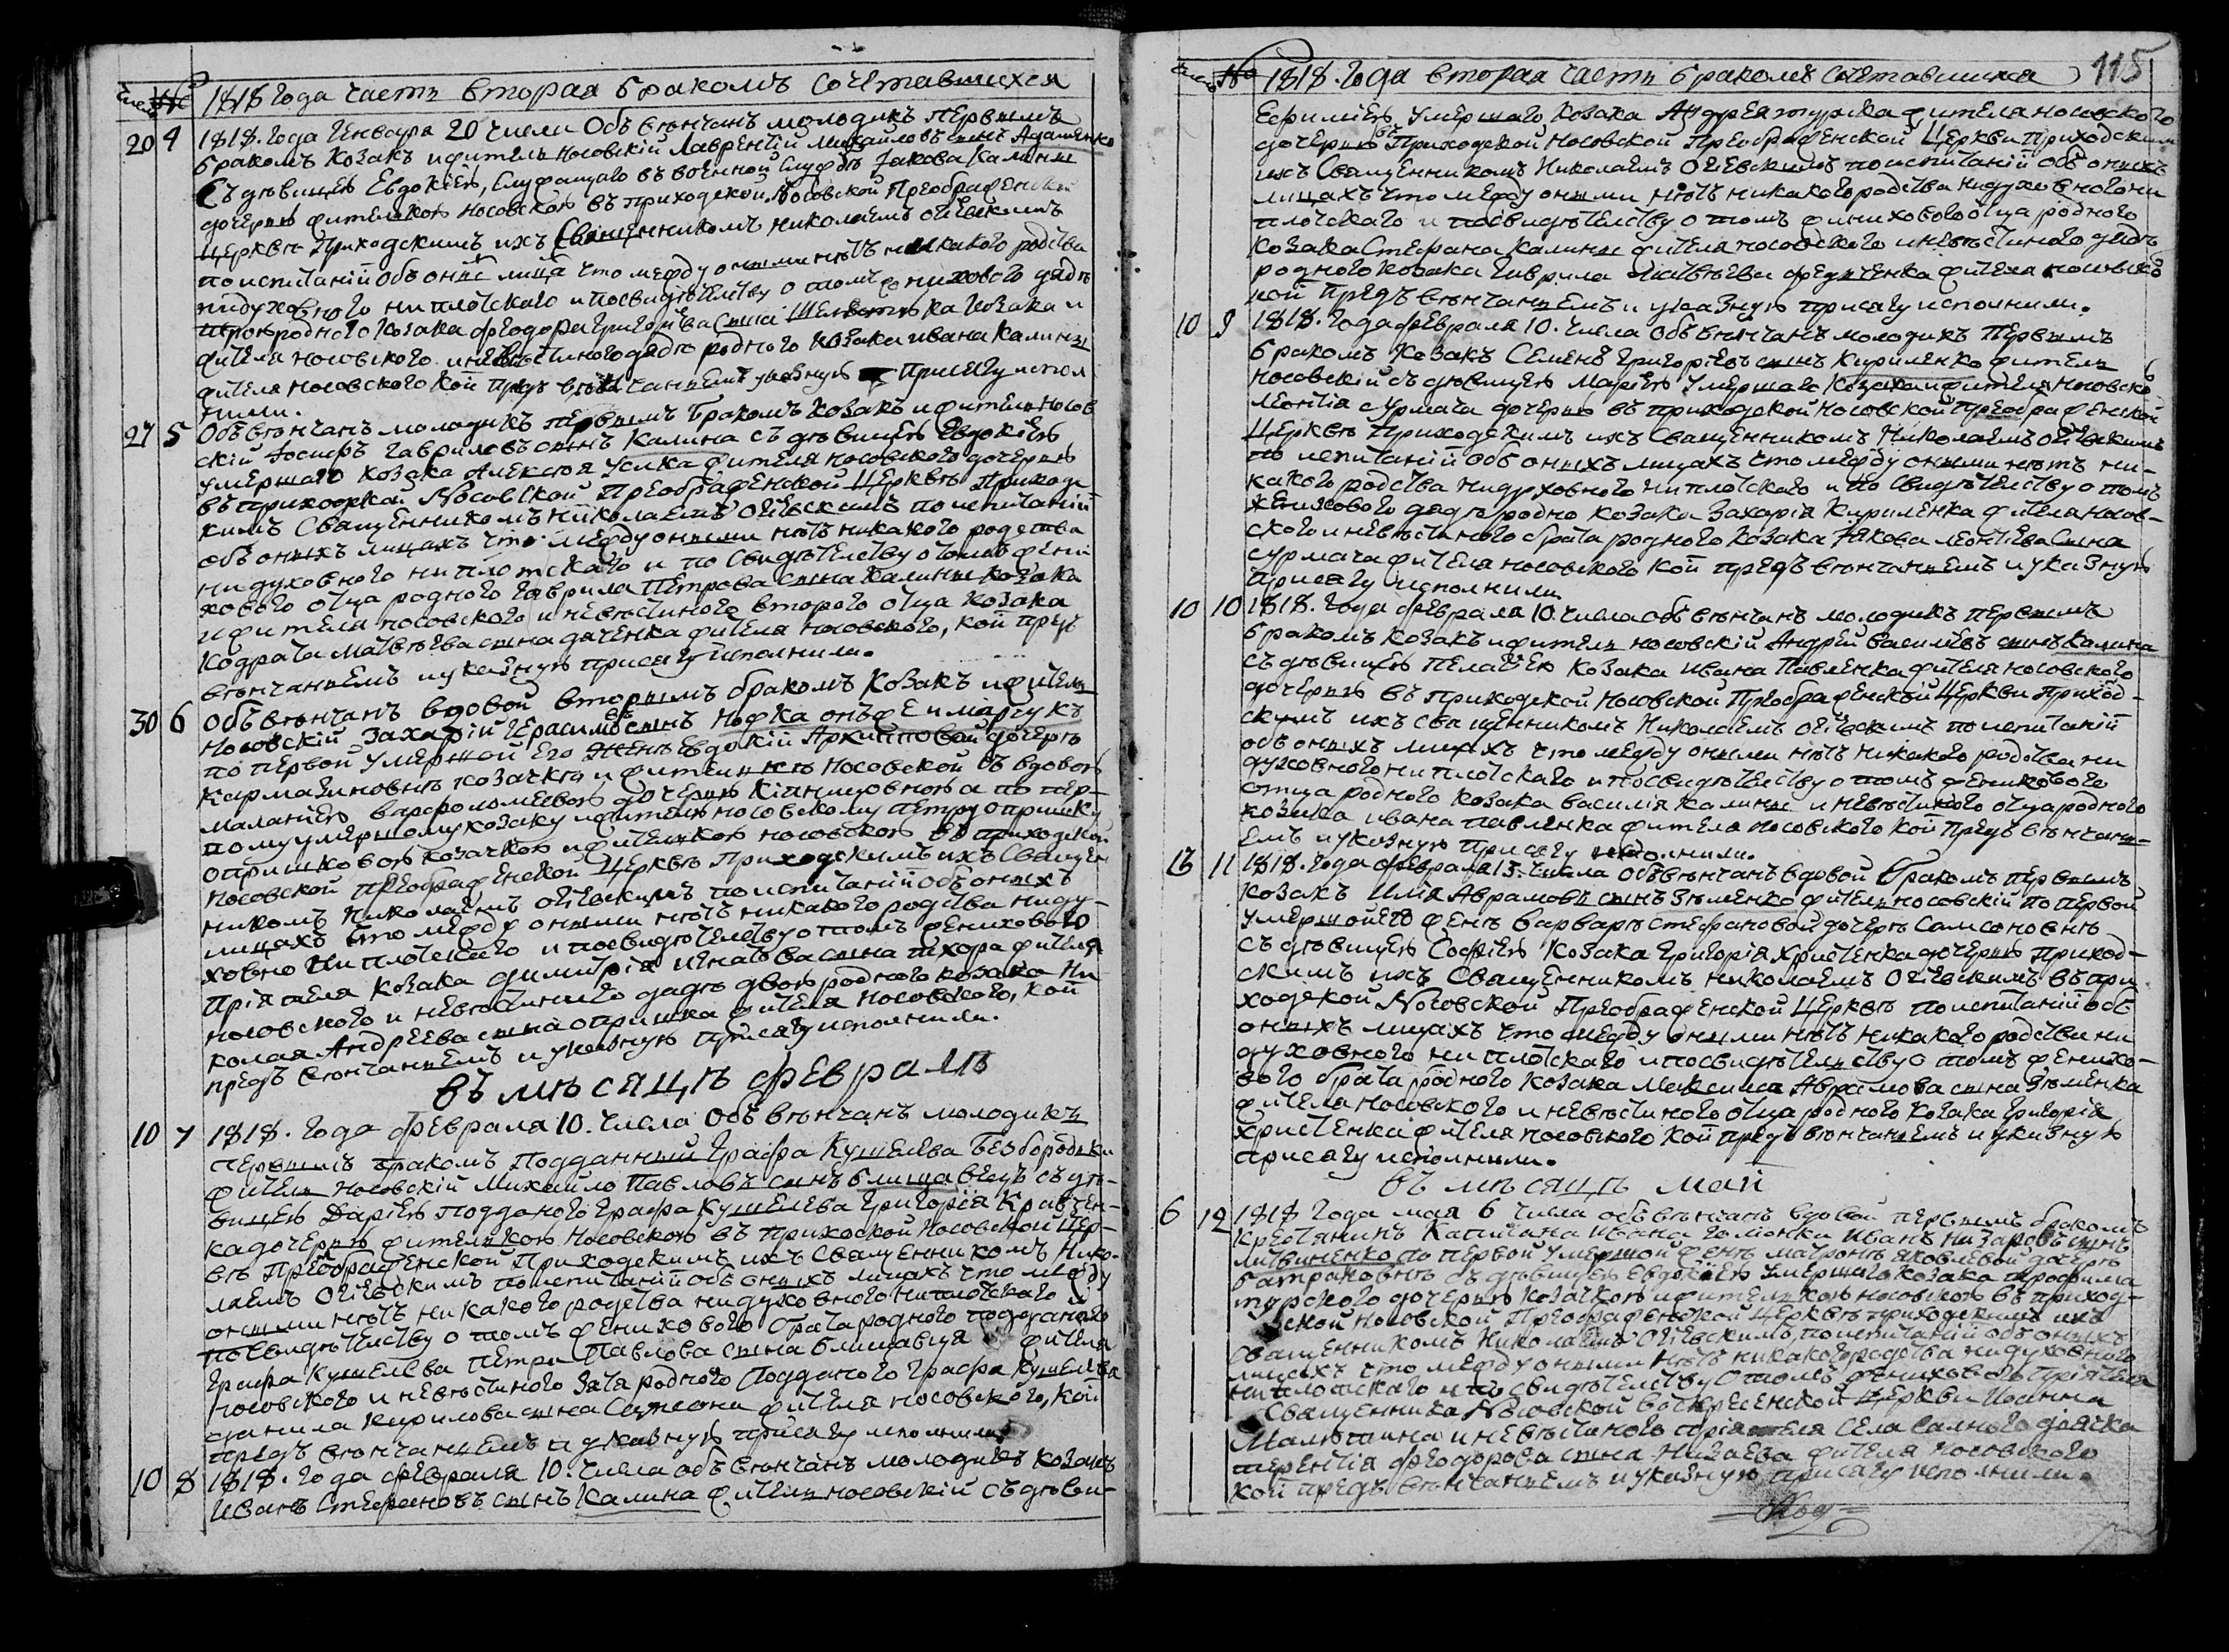 1818 Года часть вторая бракомъ сочетавшихся
20 4 1818. Года Генваря 20 числа Объвѣнчанъ молодикъ первымъ
бракомъ Козакъ ижитель Носовскій Лаврентій Михайловъ сынъ Адаменко
Съ дѣвицею Евдокіею, Служащаго въ военной службѣ Iакова Калины
дочерью жителькою Носовскою въ приходской Носовской Преображенской
Церквѣ Приходскимъ ихъ Священникомъ Николаемъ Огіевскимъ
поиспитаніи объ онихъ лицахъ что между оными нѣтъ никакого родства
нидуховного ни плотскаго и посвидѣтельству о томъ женихового дядѣ
родного Козака Феодора Григорієва сына Козака и
жителя носовского иневѣстиного дядѣ родного Козака ивана Калины
жителя носовского кои предъ вѣнчаниемъ указную присягу испол
нили.
27 5 Объвѣнчанъ молодикъ первымъ бракомъ Козакъ ижитель Носов
скій Iосифъ Гавриловъ сынъ Калина съ дѣвицею Евдокіею
умершаго Козака Алексѣя Усика жителя носовского дочерью
въ приходской Носовской Преображенской Церквѣ Приходс
кимъ Священникомъ Николаемъ Огіевскимъ поиспитаніи
объ онихъ лицахъ что между оными нѣтъ никакого родства
нидуховного ниплотскаго и по Свидѣтелству отомъ жени
хового отца родного Гаврила Петрова сына Калины Козака
ижителя носовского и невѣстиного второго отца Козака
Кодрата Матвѣева сына дяченка жителя носовского, кои предъ
вѣнчаниемъ иуказную присягу исполнили.
30 6 Объвѣнчанъ вдовой вторымъ бракомъ Козакъ ижитель
Носовскій Захарій Герасимовъ сынъ
по первой умершой Его женѣ Евдокіи Архиповой дочерѣ
Кармазиновнѣ козачкѣ и жителькѣ Носовской съ вдовою
Маланіею Варфоломеевою дочерью а по пер-
вому умершому козаку ижителю носовскому Петру опришку
опришковою козачкою ижителькою носовскою въ приходской
Носовской преображенской Церквѣ Приходскимъ ихъ Священ
никомъ Николаемъ Огіевскимъ поиспитаніи объ онихъ
лицахъ что между оными нѣтъ никакого родства ниду-
ховно ни плотскаго и посвидѣтелству отомъ жениховаго
Пріятеля Козака Димитрія Игнатьва сына тихора жителя
носовского и невѣстиного дядѣ двоюродного козака Ни
колая Андреева сына опришка жителя носовского, кои
предъ вѣнчаниемъ и указную присягу исполнили.
въ мѣсяцѣ февралѣ
10 7 1818. Года февраля 10. числа Объвѣнчанъ молодикъ
первымъ бракомъ Подданный Графа Кушелева Безбородки
житель носовскій Михайло Павловъ сынъ блищавецъ съ дѣ-
вицею Даріею подданого Графа Кушелева Григорія Кравчен-
ка дочерью жителькою Носовскою въ приходской Носовской Цер-
квѣ Преображенской Приходскимъ ихъ Священникомъ Нико-
лаемъ Огіевскимъ поиспитаніи объ онихъ лицахъ что между
оными нѣтъ никакого родства нидуховного ниплотскаго и
посвидѣтелству о томъ жениховаго брата родного подданого
Графа Кушелева Петра Павлова сына блищавця жителя
носовского и невѣстиного зятя родного Подданого Графа Кушелева
данила Кирилова сына жителя носовского, кои
предъ вѣнчаниемъ и указную присягу исполнили
10 8 1818. Года февраля 10. числа объвѣнчанъ молодикъ козакъ
Иванъ Стефановъ сынъ Калина житель носовскій съ дѣви-
115
1818. Года вторая часть бракомъ сочетавшихся
Ефиміею умершаго Козака Андрея жителя носовского
дочерью въ Приходской Носовской Преображенской Церкви Приходским
ихъ Священникомъ Николаемъ Огіевскимъ поиспитаніи объ онихъ
лицахъ что между оними нѣтъ никакого родства нидуховного ни
плотскаго и посвидѣтелству о томъ жениховаго отца родного
козака Стефана Калины жителя носовского иневѣстиного дядѣ
родного козака Гаврила Матвѣева жителя носовского
кои предъ вѣнчаниемъ и указную присягу исполнили.
10 9 1818. Года февраля 10. числа объвѣнчанъ молодикъ первымъ
бракомъ Козакъ Семенъ Григоріевъ сынъ Кириленко житель
носовскій съ дѣвицею Маріею умершаго Козака ижителя Носовско
Леонтія Сурмача дочерью въ приходской носовской преображенской
Церквѣ Приходскимъ ихъ Священникомъ Николаемъ Огіевскимъ
по испитаніи объ онихъ лицахъ что между оними нѣтъ ни-
какого родства нидуховного ниплотскаго и по Свидѣтелству о томъ
жениховаго дядѣ родно козака Захарія Кириленка жителя носов-
ского иневѣстиного брата родного козака Якова леонтіева сына
сурмача жителя носовского кои предъ вѣнчаниемъ и указную
присягу исполнили
10 10 1818. Года февраля 10. числа объвѣнчанъ молодикъ первымъ
бракомъ козакъ ижитель носовскій Андрей Василіевъ сынъ Калина
съ дѣвицею Пелагіею козака ивана Павленка жителя носовского
дочерью въ приходской носовской Преображенской Церкви приход-
скимъ ихъ священникомъ Николаемъ Огіевскимъ поиспитаніи
объ онихъ лицахъ что между оними нѣтъ никакого родства ни
духовного ниплотскаго и посвидѣтелству о томъ жениховаго
отца родного козака Василія Калины и невѣстиного отца родного
козака ивана павленка жителя носовского кои предъ вѣнчани-
емъ и указную присягу исполнили.
13 11 1818. Года февраля 13. числа объвѣнчанъ вдовой бракомъ первымъ
козакъ Илія Аврамовъ сынъ Зѣменко житель носовскій по первой
умершой его женѣ варварѣ стефановой дочерѣ Самсоновнѣ
съ дѣвицею Софіею Козака Григорія Христенка дочерью Приход-
скимъ ихъ Священникомъ Николаемъ Огіевскимъ въ при-
ходской Носовской Преображенской Церквѣ поиспитаніи объ
онихъ лицахъ что между оными нѣтъ никакого родства ни
духовного ни плотскаго и посвидѣтельству о томъ женихо-
вого брата родного козака Максима Аврамова сына Зѣменка
жителя носовского и невѣстиного отца родного козака Григорія
Христенка жителя носовского кои предъ вѣнчаниемъ и указную
присягу исполнили.
въ мѣсяцѣ маи
6 12 1818 Года мая 6 числа объвѣнчанъ вдовой первымъ бракомъ
крестянинъ Капитана ивана Гомонки иванъ Назаровъ сынъ
литвиненко по первой умершой женѣ матронѣ яковлевой дочерѣ
батраковнѣ съ дѣвицею Евдокіею умершаго козака трофима
турского дочерью козачкою ижителькою носовскою въ приход-
ской носовской Преображенской Церквѣ приходскимъ ихъ
священникомъ Николаемъ Огіевскимъ, поиспитаніи объ онихъ
лицахъ что между оними нѣтъ никакого родства нидуховного
ниплотскаго и по свидѣтелству о томъ жениховаго пріятеля
Священника Носовской воскресенской Церкви Иоанна
Малютина и невѣстиного пріятеля села дячка
терентія феодорова сына Низаева жителя носовского
кои предъ вѣнчаниемъ и указную присягу исполнили.